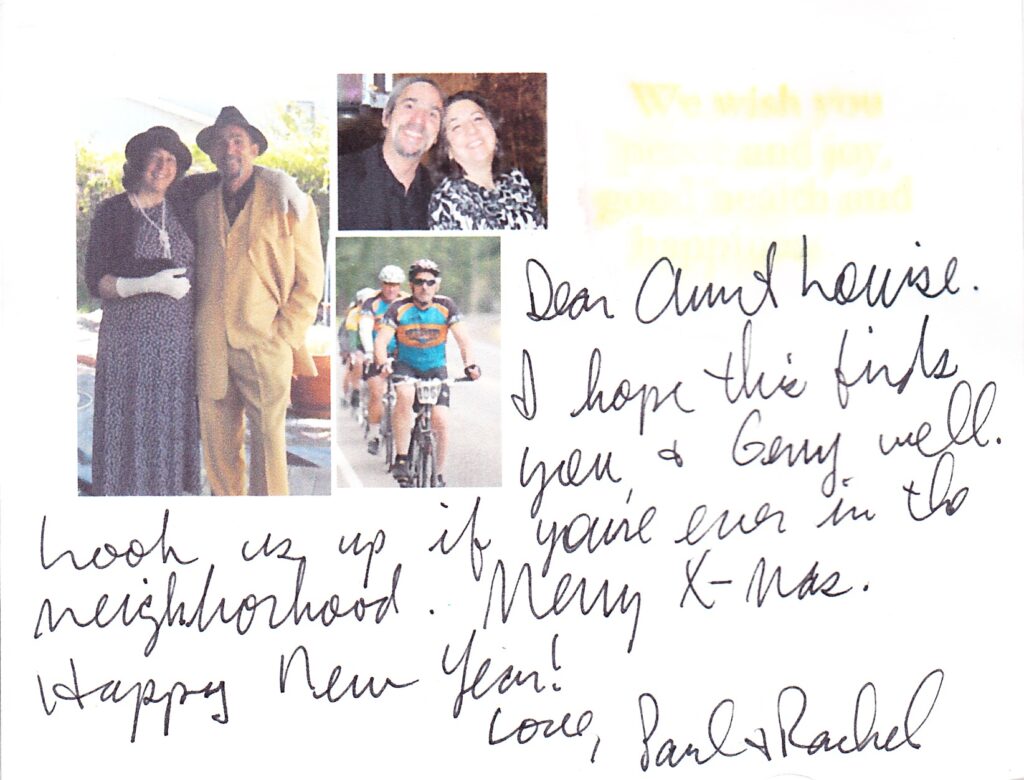 We wish you
peace and joy,
good health and
happiness
Dear Aunt Louise.
I hope this finds
you, & Gerry well.
Look us up if you're ever in the
neighborhood. Merry X-mas.
Happy New Year!
Love, Paul & Rachel